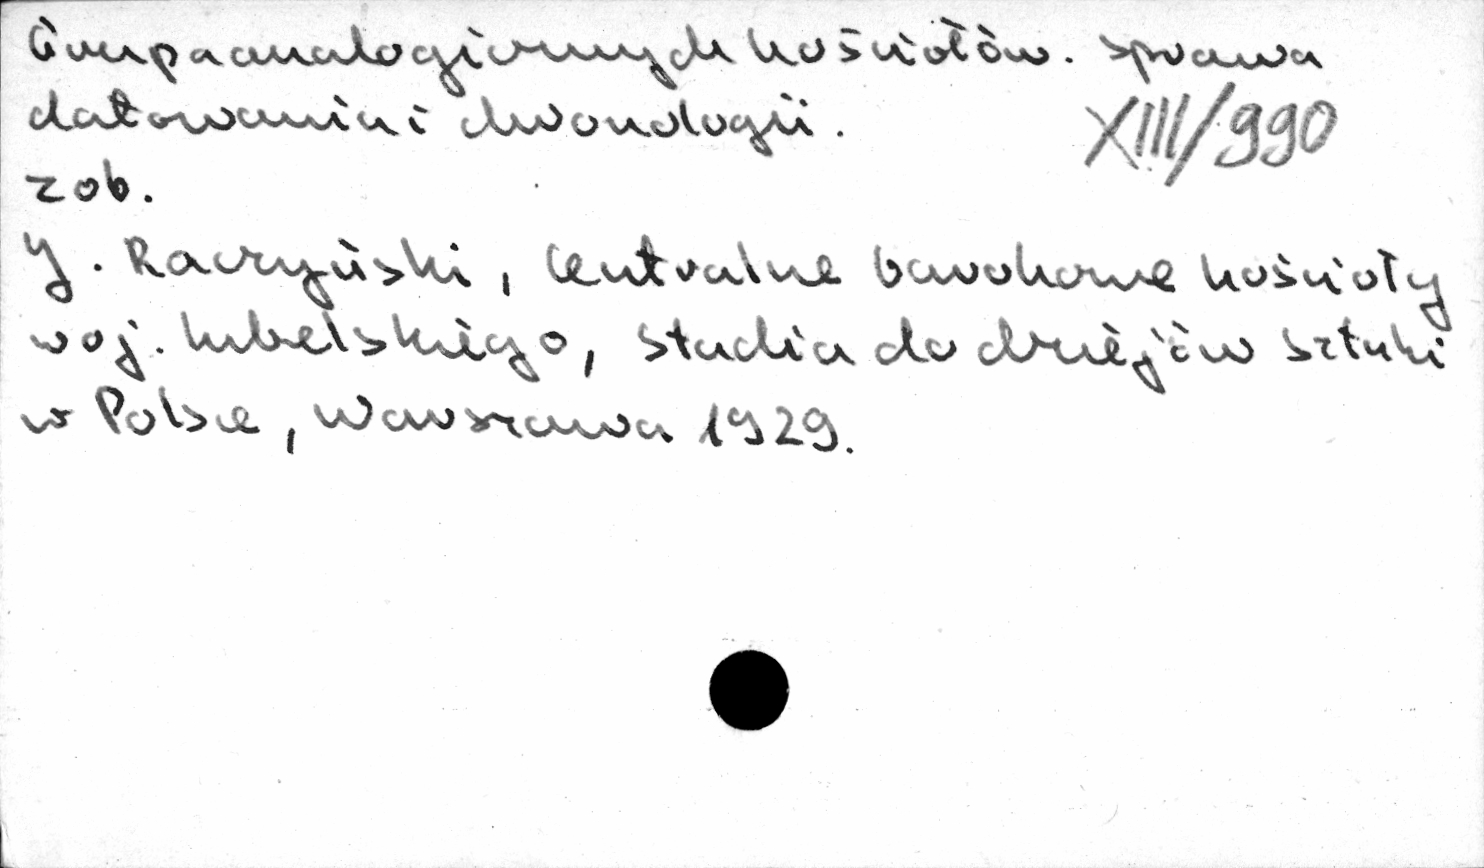 Grupa analogicznych kościołów. Sprawa
datowania i chronologii.
XIII/990
zob.
J. Raczyński, Centralne barokowe kościoły
woj. lubelskiego, Studia do dziejów sztuki
w Polsce, Warszawa 1929.